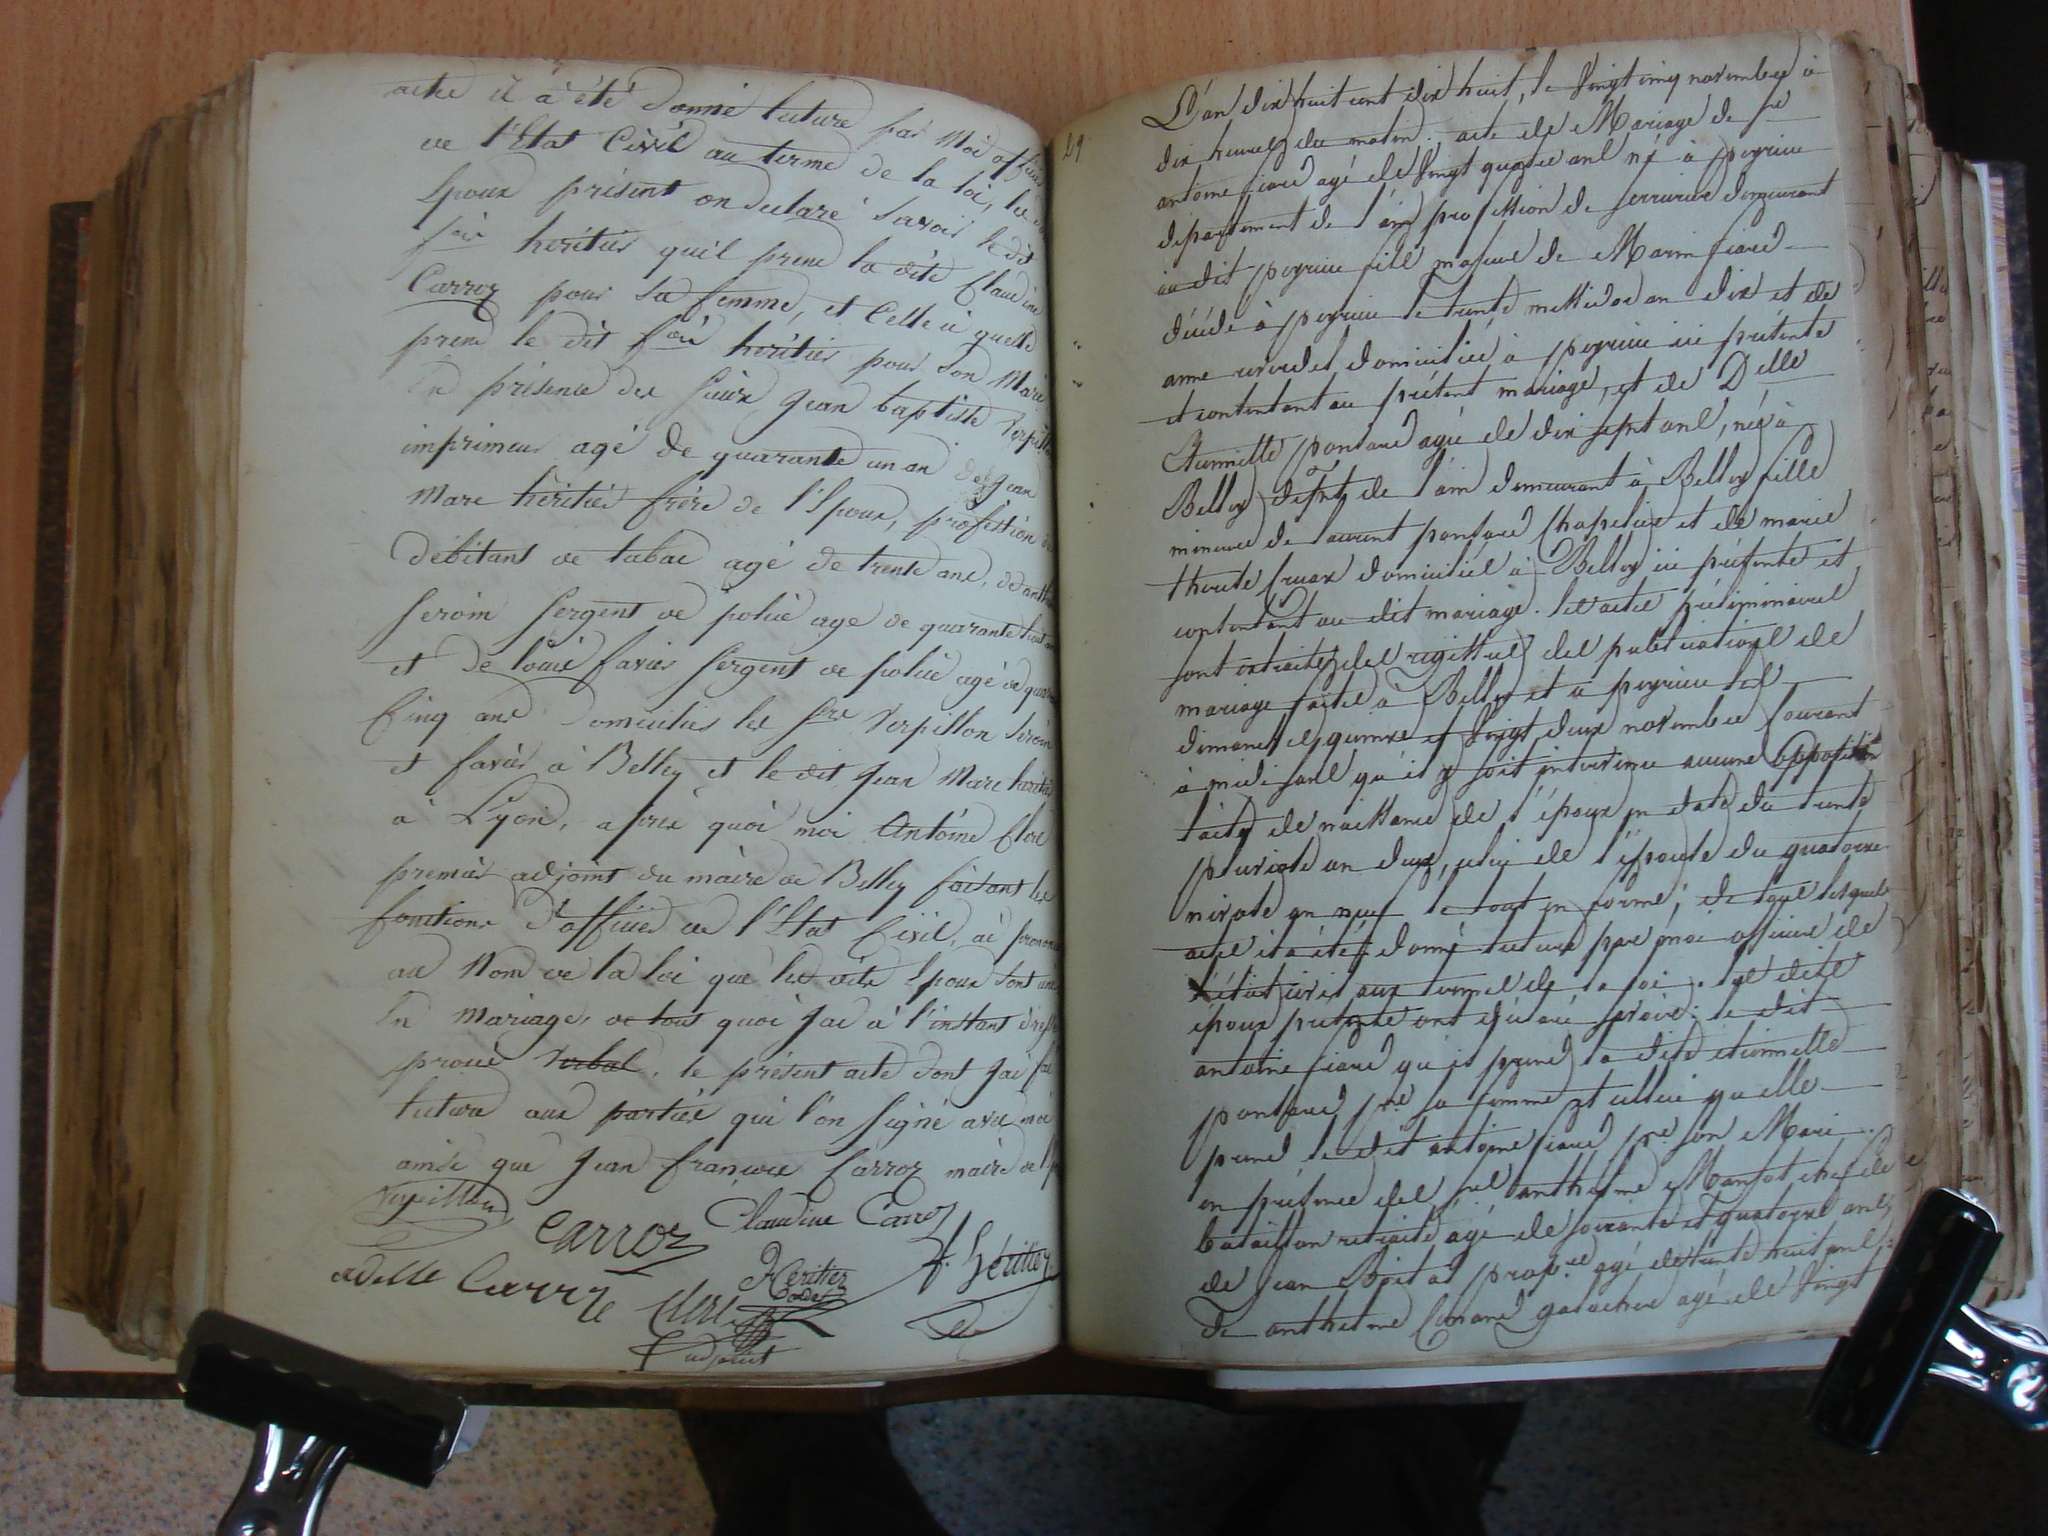 acte il a été donné lecture par Moi officier
de l'Etat Civil au terme de la loi, les
Epoux présent on declaré savoir le dit
heritier quil prene la dite Claudine
Carroz pour sa femme, et Celle ci quelle
prene le dit heritier pour son Mari
En présence des Sieurs Jean baptiste Verpillon
imprimeur agé de quarante un an de Jean
Marc héritier frère de l'Epoux, profession de
débitant de tabac agé de trente ans, de
Seroin Sergent de police age de quarante
et de louis favier Sergent de police agé de
Cinq ans domiciliés les Srs Verpillon Seroin
et favier à Belley et le dit Jean Marc heritier
à Lyon, après quoi moi Antoine Clerc
premier adjoint du maire de Belley faisant les
fonctions d'officier de l'Etat Civil, ai prononcé
au Nom de la loi que les dits Epoux sont unis
En Mariage, de tous quoi Jai à l'instant dressé
procé verbal, le présent acte dont Jai fai
lecture aux parties qui l'on signé avec moi
ainsi que Jean françois Carroz maire de
Verpillon
Carroz Claudine Carroz
adelle Carroz Clerc Héritier f. Héritier
adjoint
29
L'an dix huit cent dix huit, le vingt cinq novembre à
dix heures du matin. acte de Mariage de Sr
antoine fiard agé de vingt quatre ans né à peyrieu
departement de l'ain profession de serrurier demeurant
au dit peyrieu fils majeur de Marin fiard
décédé à peyrieu le trente messidor an dix et de
anne domiciliée à peyrieu ici présente
et consentant au présent mariage, et de Delle
Etiennette ponsard agée de dix sept ans, née à
Belley depnt de l'ain demeurant à Belley fille
mineure de laurent ponsard chapelier et de marie
therese Cruax domiciliés à Belley ici présents et
consentant au dit mariage. les actes préliminaires
sont extraits des registres des publications de
mariage faites à Belley et à peyrieu les
dimanches quinze et vingt deux novembre courant
à midi sans qu'il y soit intervenu aucune opposition
l'acte de naissance de l'époux en date du trente
pluviose an deux, celui de l'épouse du quatorze
nivose an neuf le tout en forme, de tous lesquels
actes il a été donné lecture par moi officier de
l'état civil aux termes de la loi. les dits
époux présents ont déclaré savoir: le dit
antoine fiard qu'il prend la dite etiennette
ponsard pr sa femme et celle ci quelle
prend le dit antoine fiard pr son Mari
en présence des Srs anthelme Monsot chef de
bataillon retraité agé de soixante et quatorze ans,
de jean Boitas propre agé de trente huit ans,
De anthelme Conand galocher agé de vingt